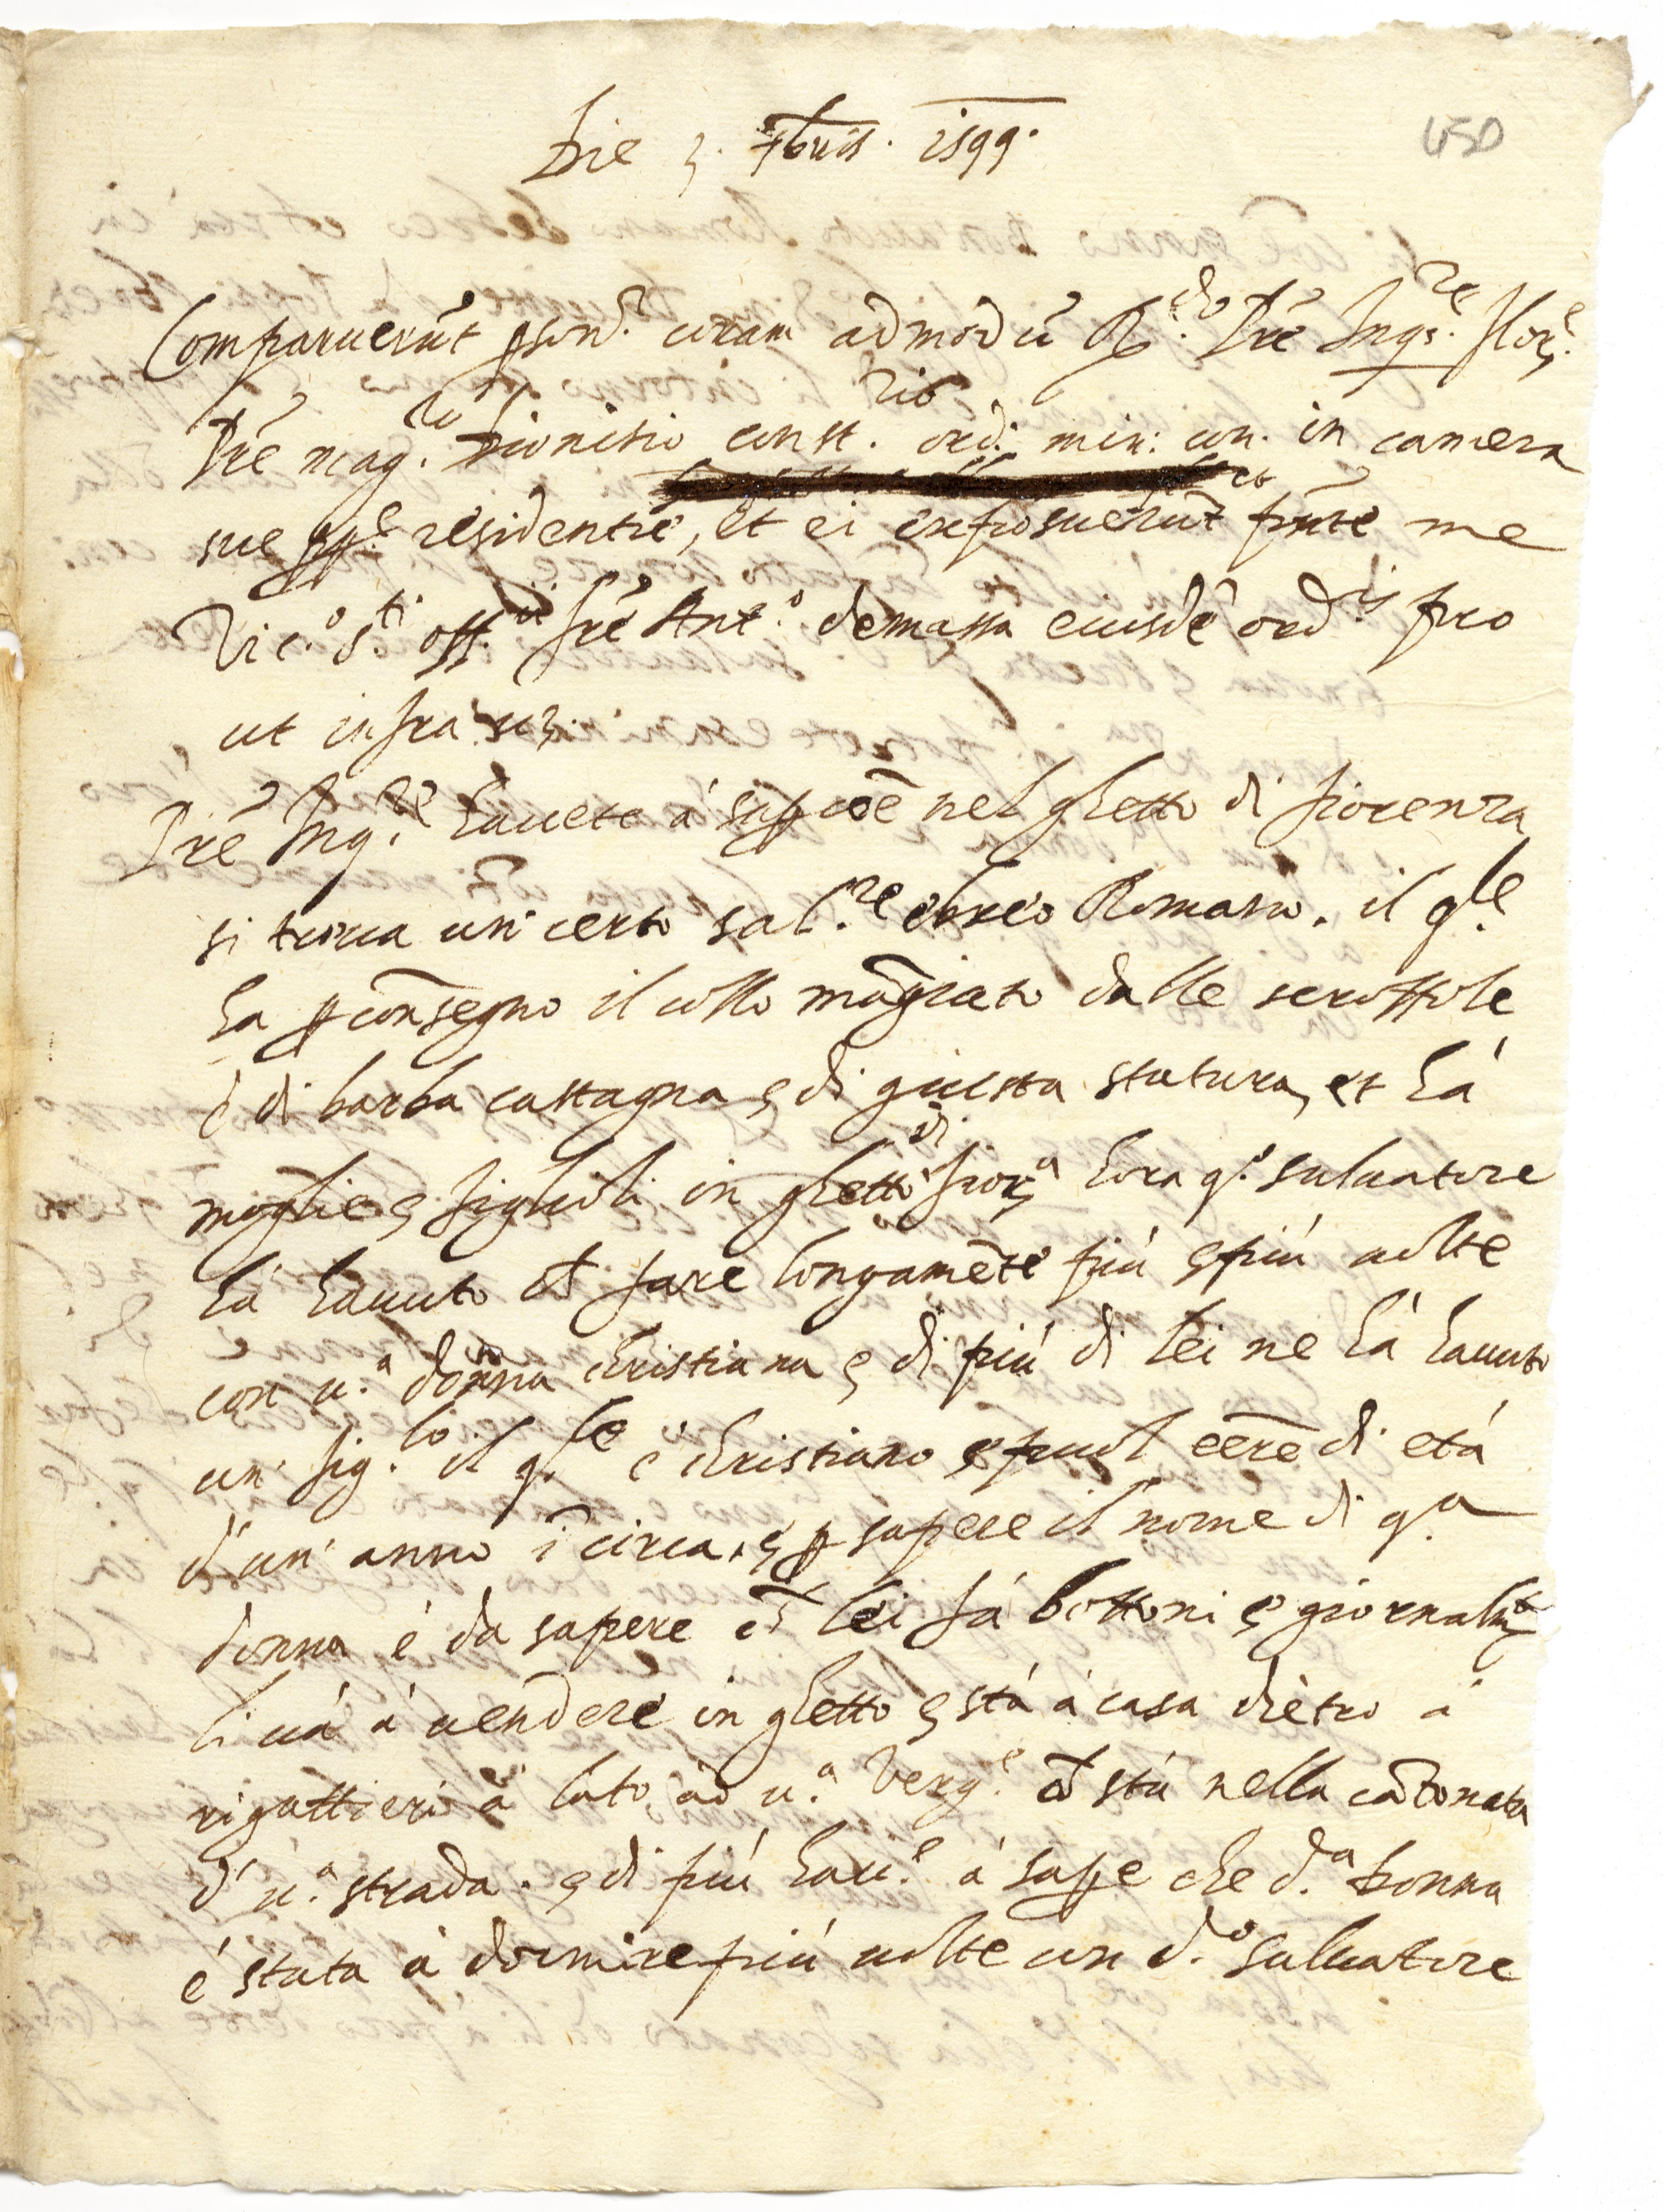 Die 3. 7bris. 1599.
450
Comparuerūt ꝑson.r coram admodū R.do Prē Inq.re Flor.e
Prē mag.ro Dionisio const. ord. min: con. in camera
sue residentie, et ei exposuerūt pn̄te me
Vic.o S.ti off.ii frē Ant.o de massa eiusdē ord.is pro
ut infra
Prē Inq.re havete á saꝑe coē nel ghetto di fiorenza
si trova un' certo sal.re ebreo Romano. il q.le
ha ꝑ conseg̅no il collo māgiato dalle scroffole
é di barba castagna e di giusta statura, et há
moglie e figliuoli in ghetto di fior.a hora q.o salvatore
há havuto ch̄ fare longamēte piú e piú volte
con u.a donna christiana e di piú di lei ne há havuto
un' fig.lo il q.le é christiano e puol eerē di etá
d'un' anno ī circa. e ꝑ sapere il nome di q.a
donna é da sapere ch̄ lei fá bottoni e giornalm̄.
li vá á vendere in ghetto e stá á casa dietro á
rigattieri á lato ad u.a Verg.e ch̄ stá nella cātonata
d'u.a strada. e di piú hav.e á saꝑe che d.a Donna
é stata á dormire piú volte con d.o salvatore